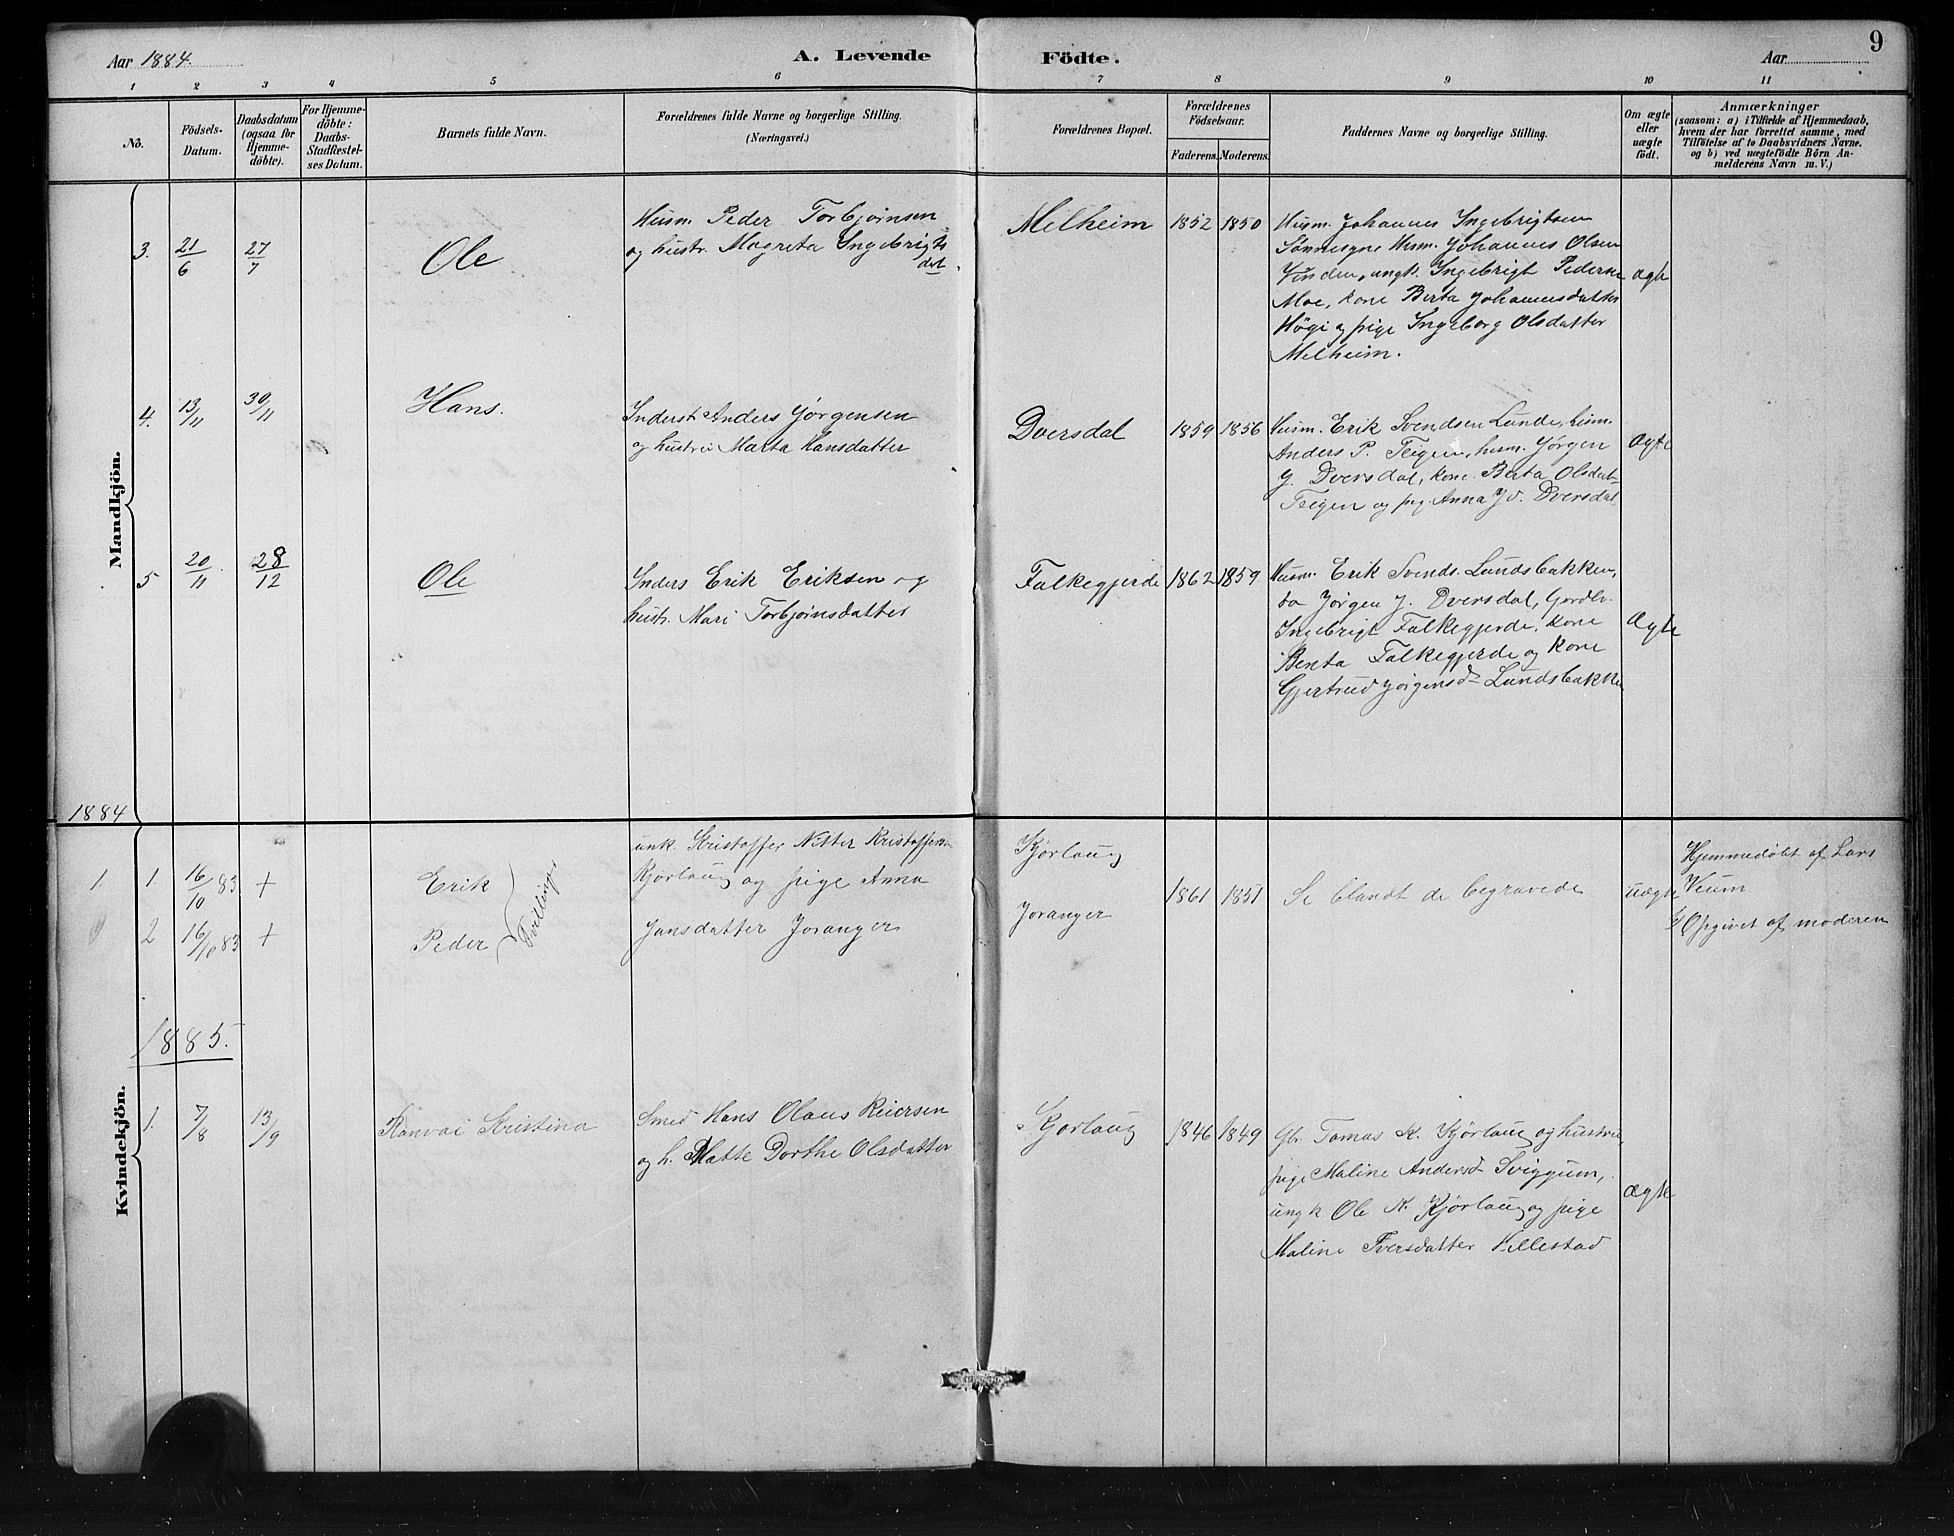 Aar 1884.
A. Levende Födte.
Aar
9
1 2 3 4 5 6 7 8 9 10 11
No.
Födsels-Datum.
Daabsdatum (ogsaa for Hjemme-döbte).
For Hjemme-döbte: Daabs-Stadfæstel-ses Datum.
Barnets fulde Navn.
Forældrenes fulde Navne og borgerlige Stilling.
(Næringsvei.)
Forældrenes Bopæl.
Forældrenes Födselsaar.
Faderens. Moderens.
Faddernes Navne og borgerlige Stilling.
Om ægte eller uægte födt.
Anmærkninger
(saasom: a) i Tilfælde af Hjemmedaab,
hvem der har forrettet samme, med
Tilföielse af to Daabsvidners Navne.
og b) ved uægtefödte Börn An-
melderens Navn m. V.)
Mandkjön.
3. 21/6 27/7 Ole
Husm. Peder Torbjørnsen
og hustr. Magreta Ingebrigts
dat.
Melheim 1852 1850
Husm. Johannes Ingebrigtsen
Husm. Johannes Olsen
Vinden, ungk. Ingebrigt Pederse
Moe, kone Berta Johannesdatter
Høgi og pige Ingeborg Olsdatter
Melheim.
ægte
4. 13/11 30/11 Hans.
Inderst Anders Jørgensen
og hustru Marta Hansdatter
Dversdal 1859 1856
Husm. Erik Svendsen Lunde, husm.
Anders P. Teigen, husm. Jørgen
J. Dversdal, kone Berta Olsdat-
Teigen og pig. Anna J. D. Dversdal
ægte
5 20/11 28/12 Ole
Inders Erik Eriksen og
hustr. Mari Torbjørnsdatter
Falkegjerde 1862 1859
Husm. Erik Svends. Lundsbakken,
do Jørgen J. Dversdal, Gardbr.
Ingebrigt Falkegjerde, kone
Berta Falkegjerde og kone
Gjertrud Jørgensd. Lundsbakken
ægte
1884
Kvindekjön.
1. 1. 16/10 83 + Erik
2 16/10 83 + Peder
Tvillinger
unk. Kristoffer Nitter Kristoffersen
Kjørlaug og pige Anna
Jansdatter Joranger
Kjørlaug
Joranger
1861 1851
Se blandt de begravede
uægte
Hjemmedøbt af Lars
Veum
Opgivet af moderen
1885.
1. 7/8 13/9 Ranvei Kristina
Smed Hans Olaus Reiersen
og h. Mette Dorthe Olsdatter
Kjørlaug 1846 1849
Gbr. Tomas K. Kjørlaug og hustru
pige Maline Andersd Sviggum,
ungk Ole K. Kjørlaug og pige
Maline Iversdatter Hillestad
ægte